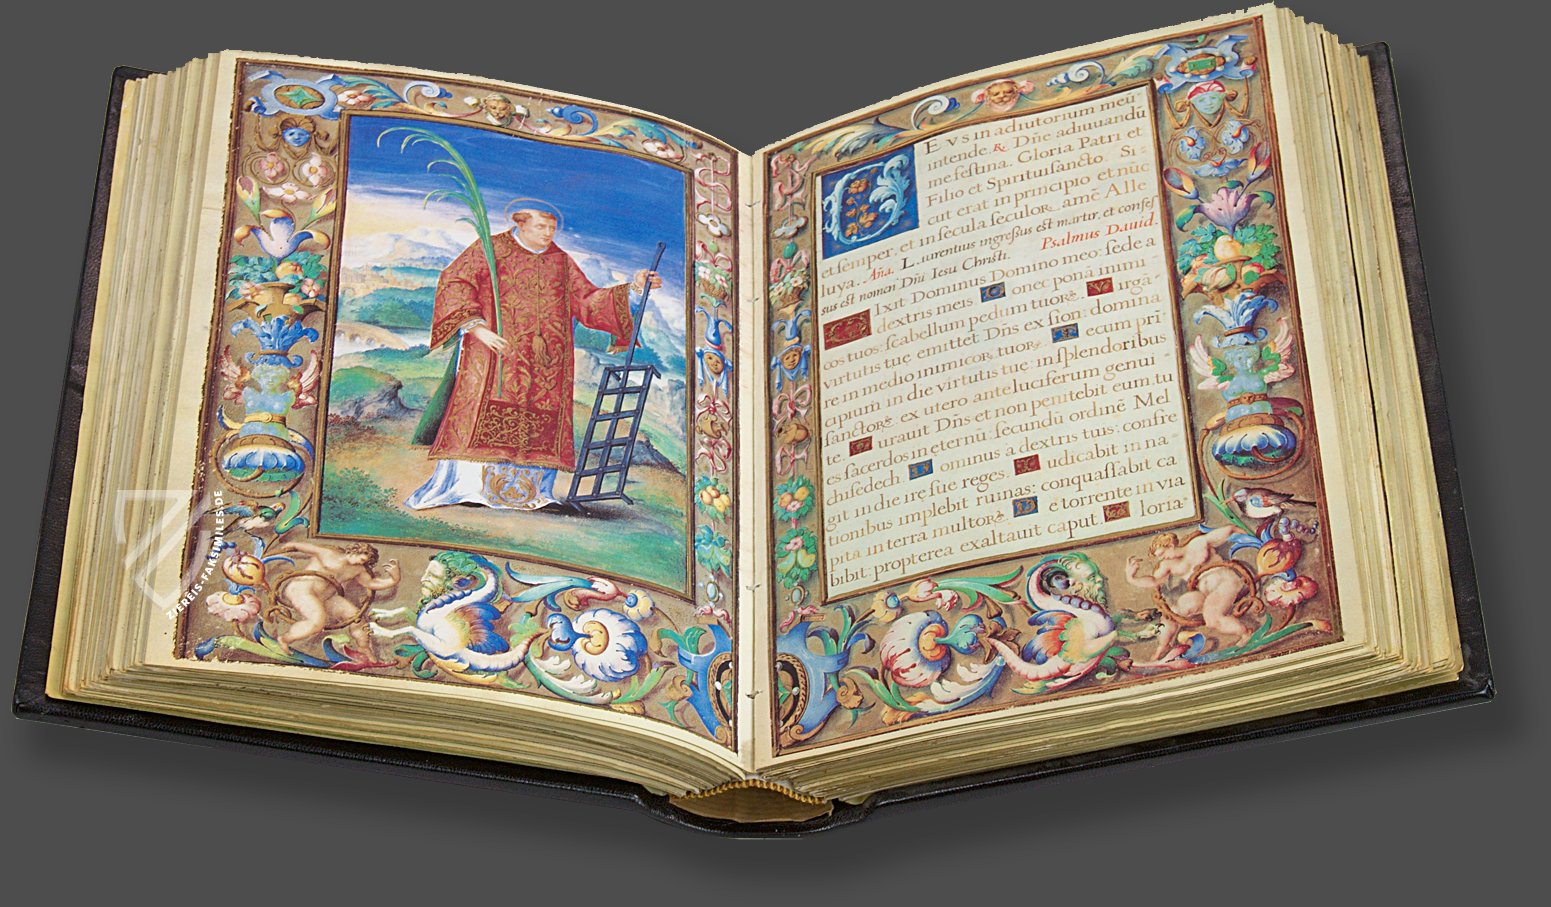 EVS in adiutorium meū
intende. R. Dñe adiuuandū
me festina. Gloria Patri et
Filio et Spirituisancto. Si-
cut erat in principio et nūc
et semper, et in secula seculoꝝ. amē Alle
luya. Aña. Laurentius ingressus est martir, et confes
sus est nomen Dñi Iesu Christi. Psalmus Dauid.
DIxit Dominus Domino meo: sede a
dextris meis. Donec ponā inimi
cos tuos: scabellum pedum tuoꝝ. Virgā
virtutis tuę emittet Dñs ex sion: domina
re in medio inimicoꝝ tuoꝝ. Tecum prī
cipium in die virtutis tuę: in splendoribus
sanctoꝝ ex utero ante luciferum genui
te. Iurauit Dñs et non penitebit eum: tu
es sacerdos in ęternū: secundū ordinē Mel
chisedech. Dominus a dextris tuis: confre
git in die irę suę reges. Iudicabit in na-
tionibus implebit ruinas: conquassabit ca
pita in terra multoꝝ. De torrente in via
bibit: propterea exaltauit caput. Gloria
ZIEREIS FAKSIMILES.DE